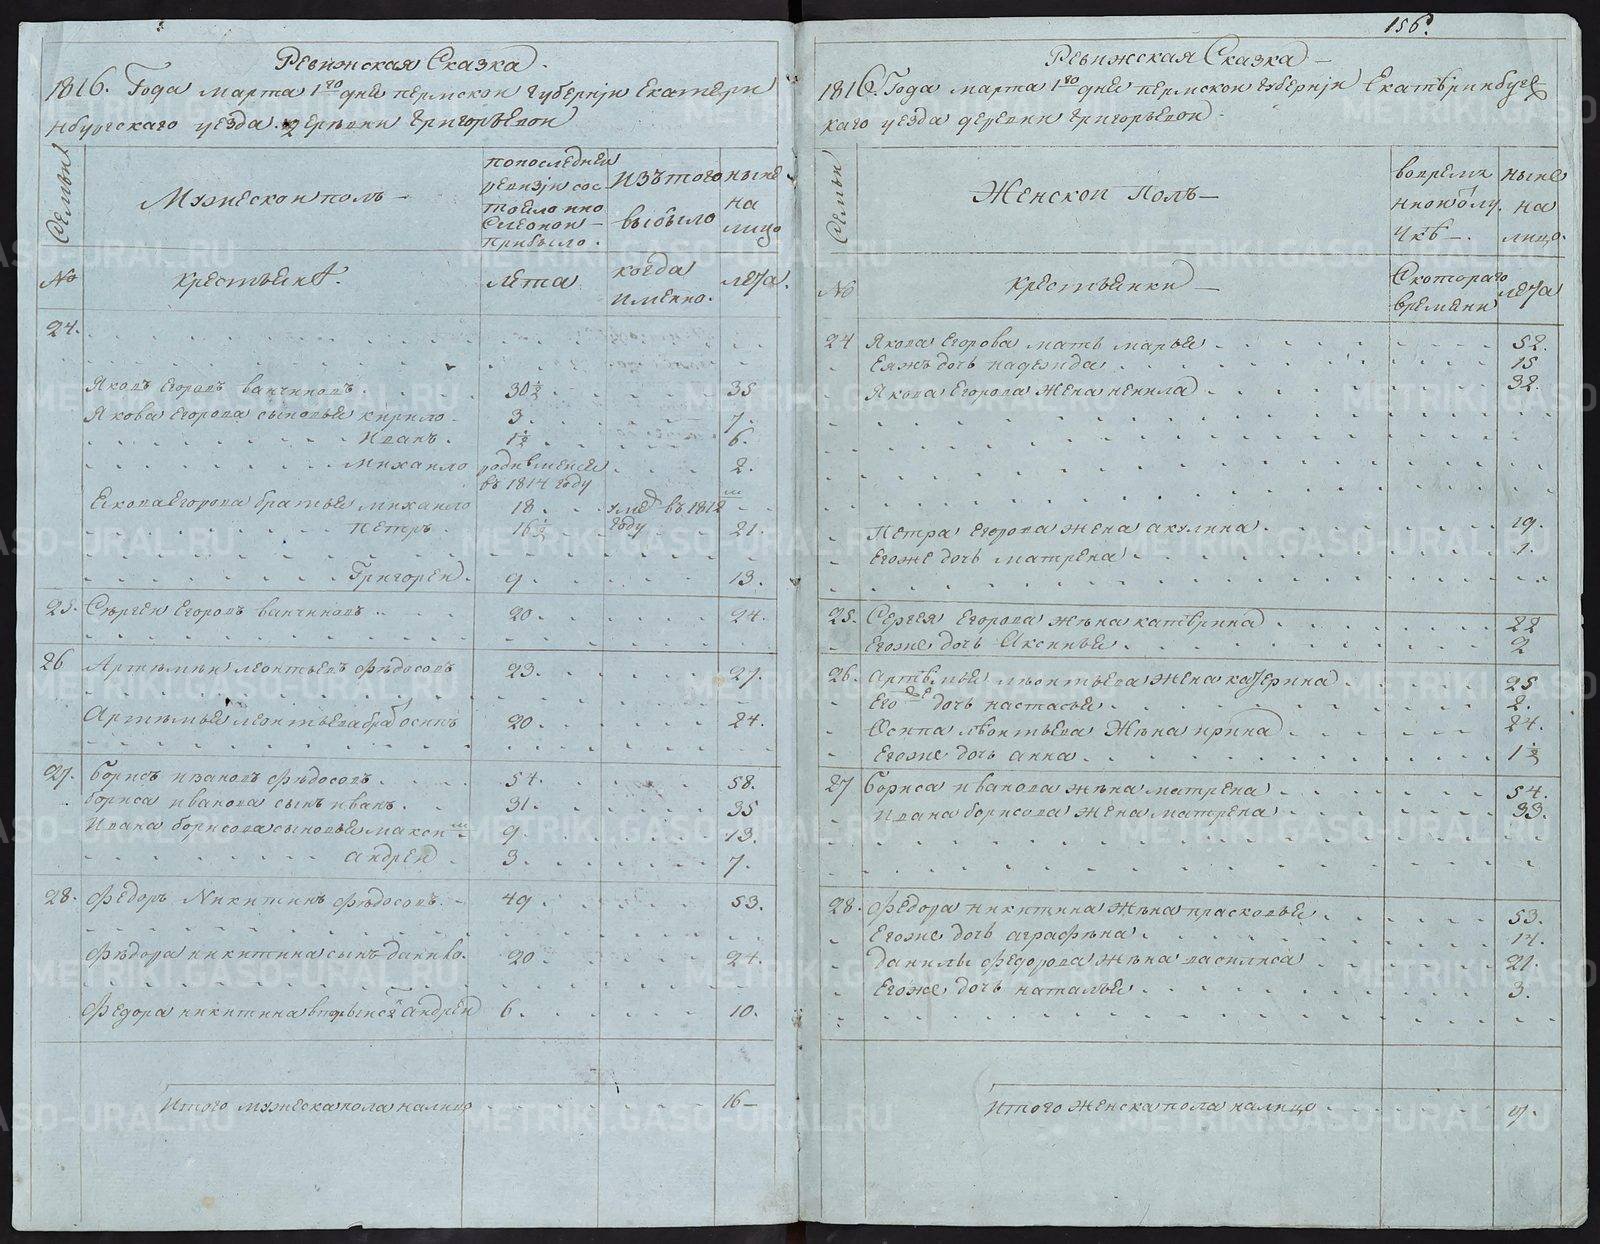 156.
Ревижская Сказка.
1816. Года марта 1го дня пермской Губернiи Екатери
нбургскаго уезда. деревни Григорьевой
Семьи
Мужескои полъ
попоследнеи
ревизiи сос
тояло
прибыло.
Изътого
выбыло
ныне
на
лицо
No
крестьяня.
лета
когда
именно.
лета.
24.
Яковъ Егоровъ ванчиновъ 30½ 35
Якова Егорова сыновья кирило 3 7.
Иванъ. 1½ 6.
михаило родившейся 2.
въ 1814 году
Екова Егорова братья михаило 18 уме въ 1812
петръ. 16½ году 21.
Григореи. 9 13.
25. Сергеи Егоровъ ванчиновъ 20. 24.
26 Артемеи леонтьевъ федосовъ 23. 27.
Артемья леонтьева бра осипъ 20 24.
27. борисъ ивановъ федосовъ 54. 58.
бориса иванова сынъ иванъ. 31. 35
Ивана борисова сыновья макси 9 13.
андреи 3. 7.
28. федоръ Никитинъ федосовъ. 49 53.
федора никитина сынъ данило. 20 24.
федора никитина вторые андреи 6. 10.
Итого мужеска пола налицо 16
Ревижская Сказка
1816. Года марта 1го дня пермской Губернiи Екатеринбургс
каго уезда деревни Григорьевой
Семьи
Женскои Полъ
вовремян
ныне
на
лицо.
No
крестьянки
Скотораго
времени
лета
24 Якова Егорова мать марья 52.
Еяжъ дочь надежда 15
Якова Егорова Жена ненила 32.
Петра Егорова жена акулина 19.
Егоже дочь матрена 1.
25. Сергея Егорова жена катерина 22
Егоже дочь Аксинья 2
26. артемья леонтьева жена катерина 25
Его же дочь настасья 2.
Осипа леонтьева Жена ирина 24.
Егоже дочь анна 1½
27 бориса иванова жена матрена 54.
Ивана борисова жена матрена 33.
28. федора никитина жена прасковья 53.
Егоже дочь аграфена 14.
данилы федорова жена василиса 21.
Егоже дочь наталья 3.
Итого Женска пола налицо 17.
METRIKI.GASO-URAL.RU